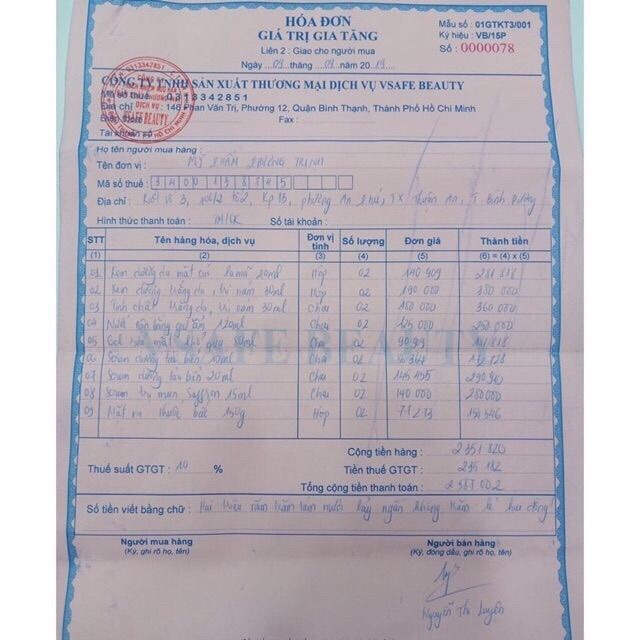 HÓA ĐƠN
GIÁ TRỊ GIA TĂNG
Liên 2 : Giao cho người mua
Ngày 09 tháng 09 năm 2019
Mẫu số : 01GTKT3/001
Ký hiệu : VB/15P
Số : 0000078
CÔNG TY TNHH SẢN XUẤT THƯƠNG MẠI DỊCH VỤ VSAFE BEAUTY
Mã số thuế : 0313342851
Địa chỉ : 146 Phan Văn Trị, Phường 12, Quận Bình Thạnh, Thành Phố Hồ Chí Minh
Điện thoại : Fax :
Số tài khoản :
Họ tên người mua hàng :
Tên đơn vị : MỸ PHẨM PHƯƠNG TRINH
Mã số thuế :
Địa chỉ : 3, KP 1B, phường An Phú, TX Thuận An, T Bình Dương
Hình thức thanh toán : TM/CK Số tài khoản :
STT Tên hàng hóa, dịch vụ Đơn vị tính Số lượng Đơn giá Thành tiền
(1) (2) (3) (4) (5) (6) = (4) x (5)
01 Kem dưỡng da mặt 20ml Hộp 02 140 909 281 818
02 Kem dưỡng trắng da, trị nám 30ml Hộp 02 190 000 380 000
03 Tinh chất trắng da, trị nám 30ml Chai 02 180 000 360 000
04 Nước cân bằng giữ ẩm 120ml Chai 02 125 000 250 000
05 Gel rửa mặt Chai 02 90 909 181 818
06 Serum dưỡng tảo biển 10ml Chai 02
07 Serum dưỡng tảo biển 20ml Chai 02 145 455 290 910
08 Serum trị mụn, Saffron 15ml Chai 02 140 000 280 000
09 Mặt nạ thuốc bắc 150g Hộp 02 77 273 154 546
VSAFE BEAUTY
Cộng tiền hàng : 2 351 820
Thuế suất GTGT : 10 % Tiền thuế GTGT : 235 182
Tổng cộng tiền thanh toán : 2 587 002
Số tiền viết bằng chữ : Hai triệu năm trăm tám mươi bảy ngàn không trăm lẻ hai đồng
Người mua hàng Người bán hàng
(Ký, ghi rõ họ, tên) (Ký, đóng dấu, ghi rõ họ, tên)
Nguyễn Thị Luyến